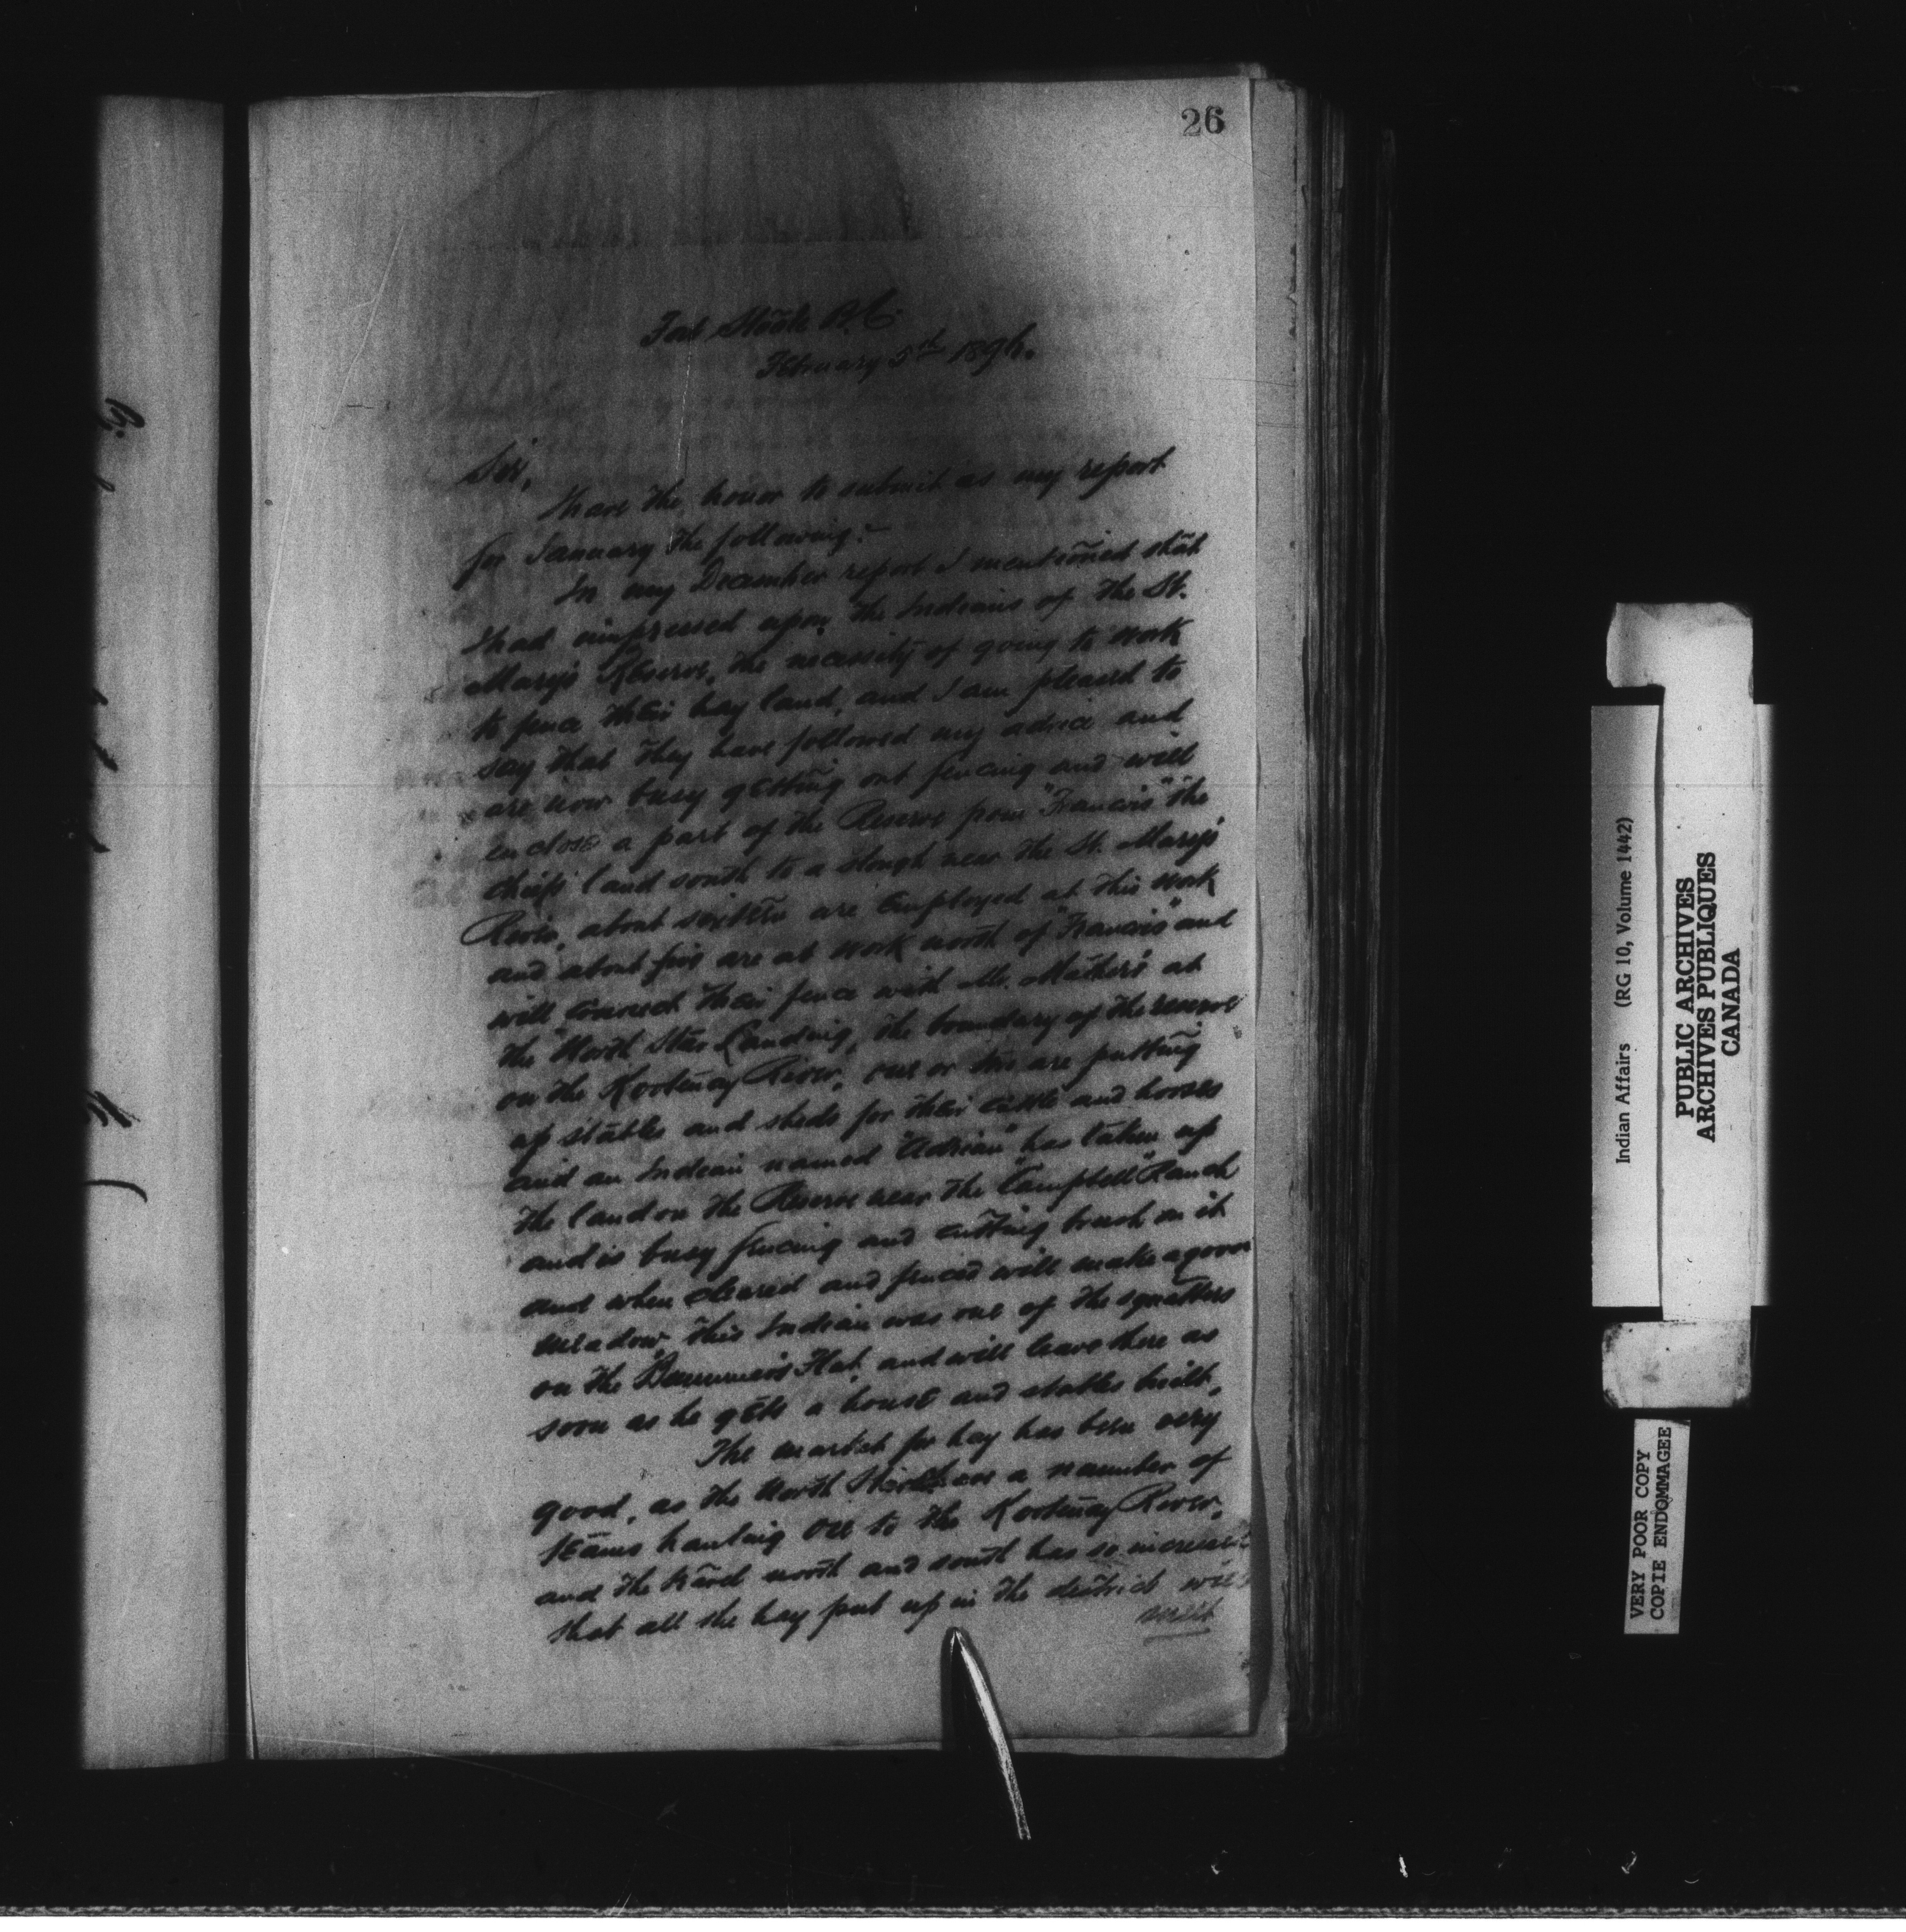 26
Fort Steele B.C.
February 5th 1896.
Sir,
I have the honor to submit as my report
for January the following:-
In my December report I mentioned that
I had impressed upon the Indians of the St.
Mary's Reserve, the necessity of going to work
to fence their hay land, and I am pleased to
say that they have followed my advice and
are now busy getting out fencing and will
enclose a part of the Reserve from "Francois" the
chiefs land south to a slough near the St. Mary's
River, about sixteen are employed at this work
and about five are at work north of "Francois" and
will connect their fence with Mr. Mather's at
the "North Star Landing, the boundary of the reserve
on the Kootenay River, one or two are putting
up stables and sheds for their cattle and horses
and an Indian named "Adrian" has taken up
the land on the Reserve near the "Campbell" Ranch
and is busy fencing and cutting brush on it
and when cleared and fenced will make a good
meadow, this Indian was one of the squatters
on the Flat, and will leave there as
soon as he gets a house and stables built,
The market for hay has been very
good, as the North Star has a number of
teams hauling ore to the Kootenay River,
and the travel north and south has so increased
that all the hay put up in the district will
Indian Affairs (RG 10, Volume 1442)
PUBLIC ARCHIVES
ARCHIVES PUBLIQUES
CANADA
VERY POOR COPY
COPIE ENDOMMAGEE